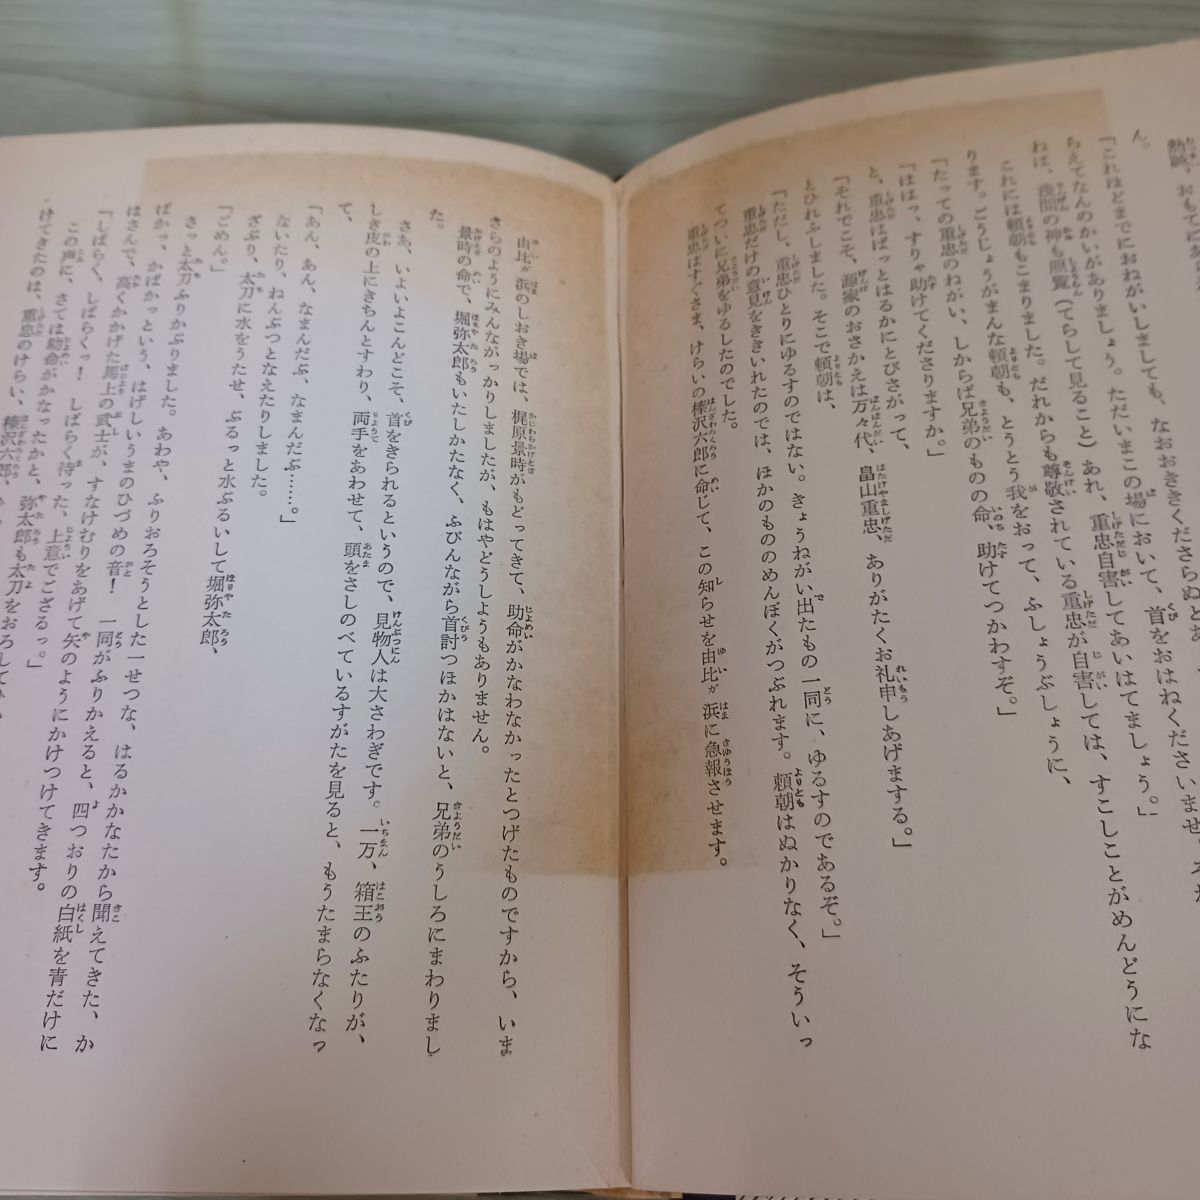 熱誠、おもてにあ
ん。
「これほどまでにおねがいしても、なおおききくださらぬとあ
らえてなんのかいがありましょう。ただいまこの場において、首をおはねくださいませ。
ねば、浅間の神も照覧（てらして見ること）あれ、重忠自害してあいはてましょう。」
これには頼朝もこまりました。だれからも尊敬されている重忠が自害しては、すこしことがめんどうにな
ります。ごうじょうがまんな頼朝も、とうとう我をおって、ふしょうぶしょうに、
「たっての重忠のねがい、しからば兄弟のものの命、助けてつかわすぞ。」
「ははっ、すりゃ助けてくださりますか。」
と、重忠はぱっとはるかにとびさがって、
「それでこそ、源家のおさかえは万々代、畠山重忠、ありがたくお礼申しあげまする。」
とひれふしました。そこで頼朝は、
「ただし、重忠ひとりにゆるすのではない。きょうねがい出たもの一同に、ゆるすのであるぞ。」
重忠だけの意見をききいれたのでは、ほかのもののめんぼくがつぶれます。頼朝はぬかりなく、そういっ
てついに兄弟をゆるしたのでした。
重忠はすぐさま、けらいの榛沢六郎に命じて、この知らせを由比ガ浜に急報させます。
由比ガ浜のしおき場では、梶原景時がもどってきて、助命がかなわなかったとつげたものですから、いま
さらのようにみんながっかりしましたが、もはやどうしようもありません。
景時の命で、堀弥太郎もいたしかたなく、ふびんながら首討つほかはないと、兄弟のうしろにまわりまし
た。
さあ、いよいよこんどこそ、首をきられるというので、見物人は大さわぎです。一万、箱王のふたりが、
しき皮の上にきちんとすわり、両手をあわせて、頭をさしのべているすがたを見ると、もうたまらなくなっ
て、
「あん、あん、なまんだぶ、なまんだぶ……。」
ないたり、ねんぶつとなえたりしました。
ざぶり、太刀に水をうたせ、ぶるっと水ぶるいして堀弥太郎、
「ごめん。」
さっと太刀ふりかぶりました。あわや、ふりおろそうとした一せつな、はるかかなたから聞えてきた、か
ぱかっ、かぱかっという、はげしいうまのひづめの音！　一同がふりかえると、四つおりの白紙を青だけに
はさんで、高くかかげた馬上の武士が、すなけむりをあげて矢のようにかけつけてきます。
「しばらく、しばらくっ！　しばらく待った、上意でござるっ。」
この声に、さては助命がかなったかと、弥太郎も太刀をおろして
けてきたのは、重忠のけらい、榛沢六郎、